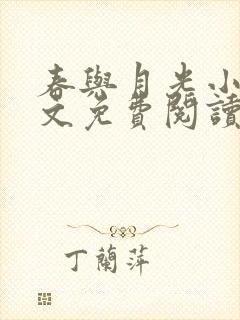 春與月光小
文免費閱讀
丁蘭萍